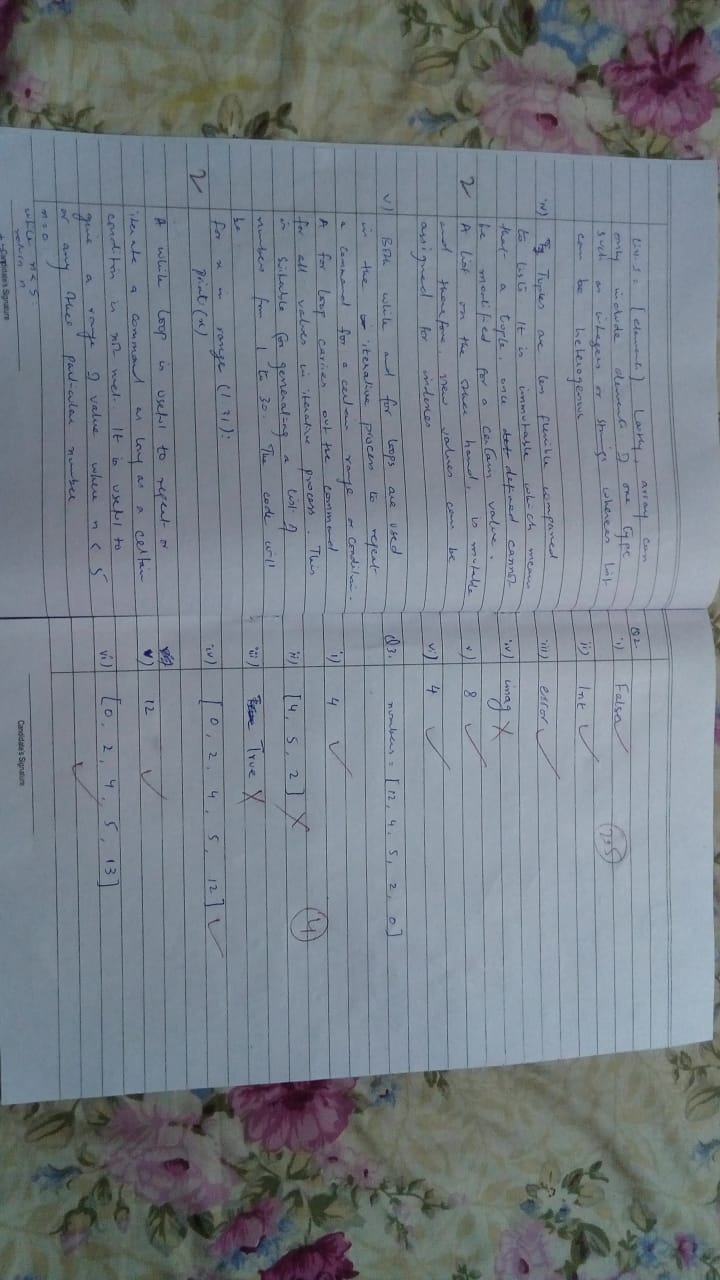 List = [element]. Lastly, array can
only include elements of one type
such as integers or strings whereas list
can be heterogenous
iv) Tuples are less flexible compared
to lists. It is immutable which means
that a tuple, once defined cannot
be modified for a certain value.
2
A list on the other hand, is mutable
and therefore, new values can be
assigned for indexes
v) Both while and for loops are used
in the iterative process to repeat
a command for a certain range or condition.
A for loop carries out the command
for all values in iterative process. This
is suitable for generating a list of
numbers from 1 to 30. The code will
be
for x in range (1 31):
print(x)
2
A while loop is useful to repeat or
iterate a command as long as a certain
condition is not met. It is useful to
give a range of value where n < 5
or any other particular number
n=0
while n<5:
return n
Candidate's Signature
Q2
i) False
ii) Int
iii) error
iv) imag
v) 8
vi) 4
Q3. numbers = [12, 4, 5, 2, 0]
i) 4
ii) [4, 5, 2]
4
iii) True
iv) [0, 2, 4, 5, 12]
v) 12
vi) [0, 2, 4, 5, 13]
Candidate's Signature